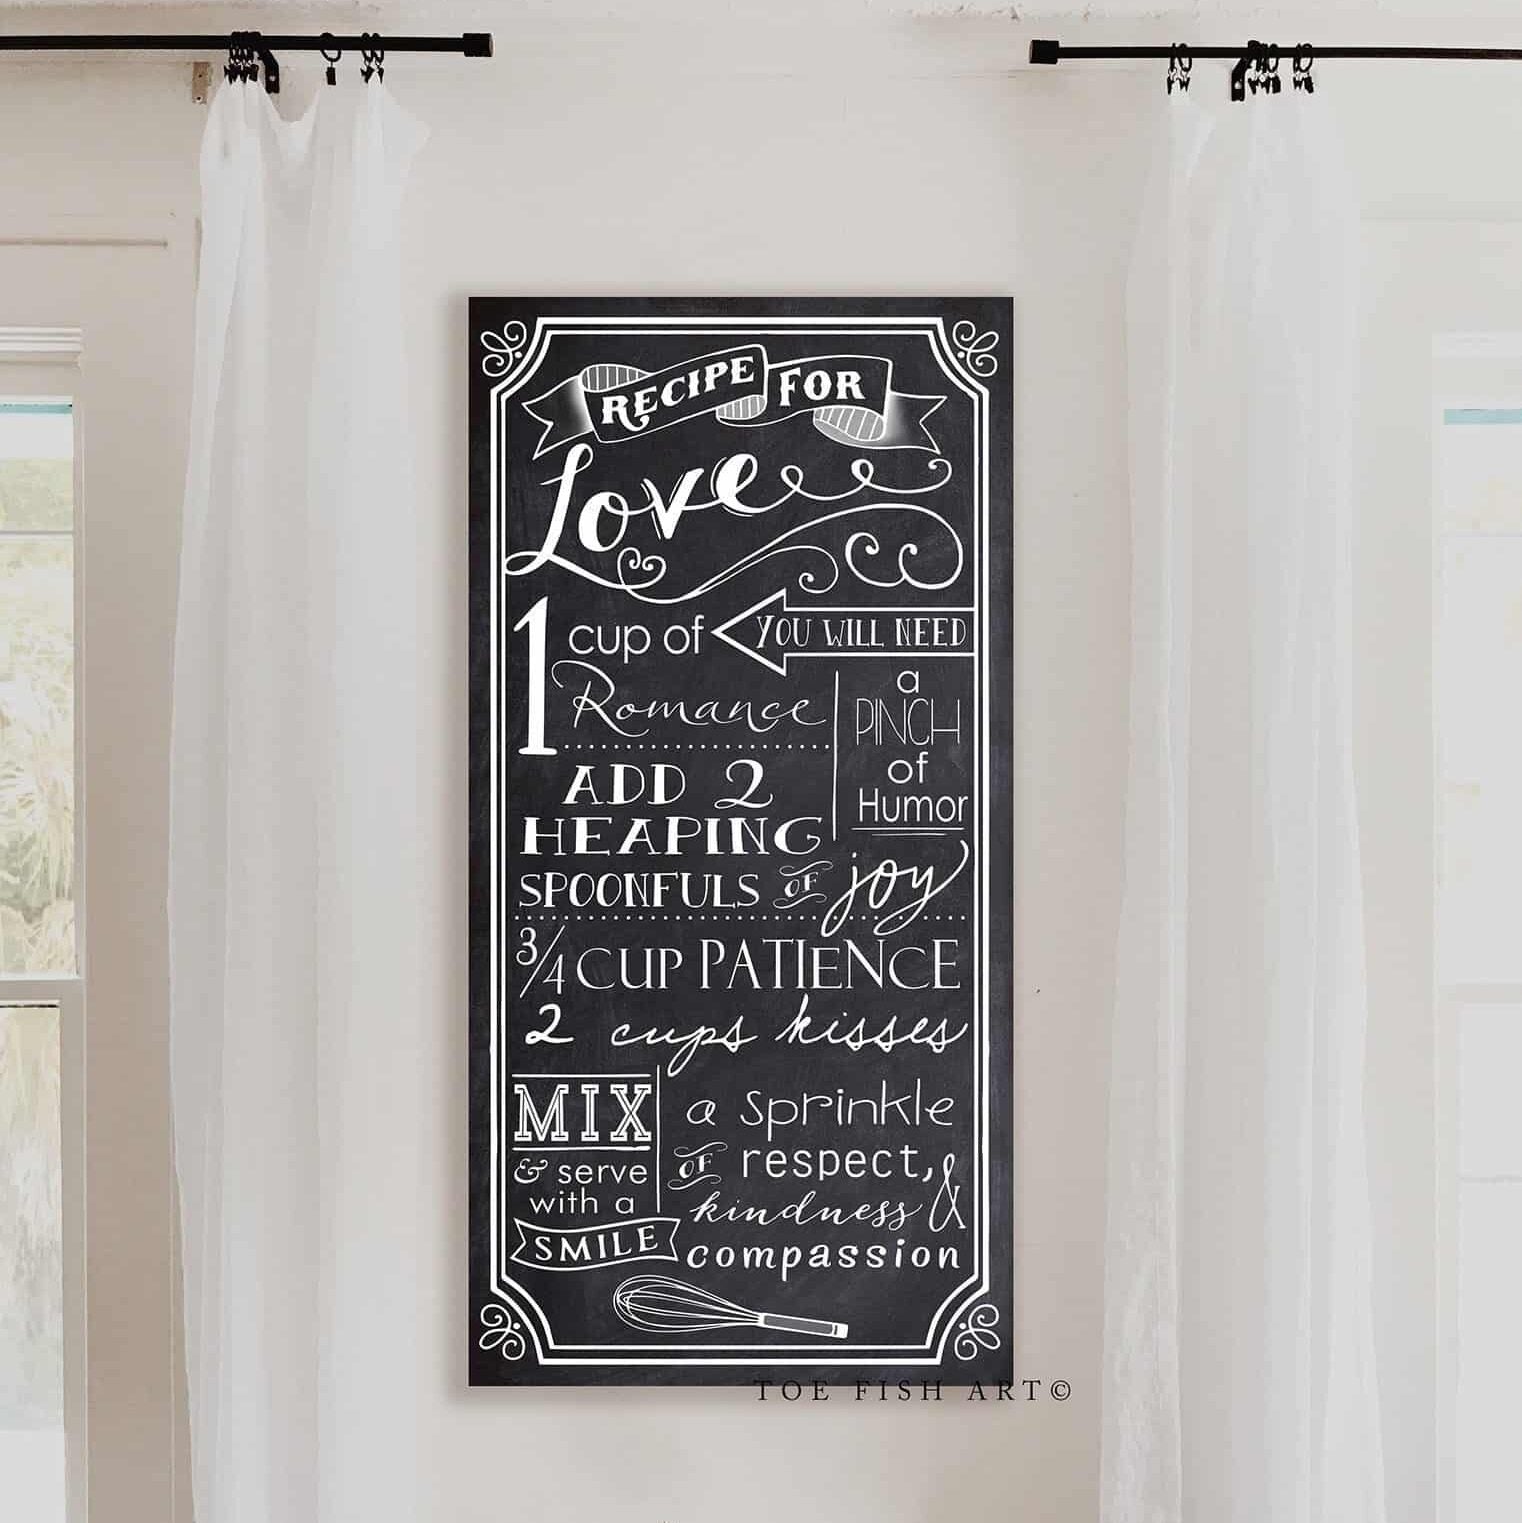 RECIPE FOR
Love
YOU WILL NEED
1 cup of
Romance
a
PINCH
of
Humor
ADD 2
HEAPING
SPOONFULS OF joy
3/4 CUP PATIENCE
2 cups kisses
MIX
& serve
with a
SMILE
a sprinkle
OF respect,
kindness &
compassion
TOE FISH ART©